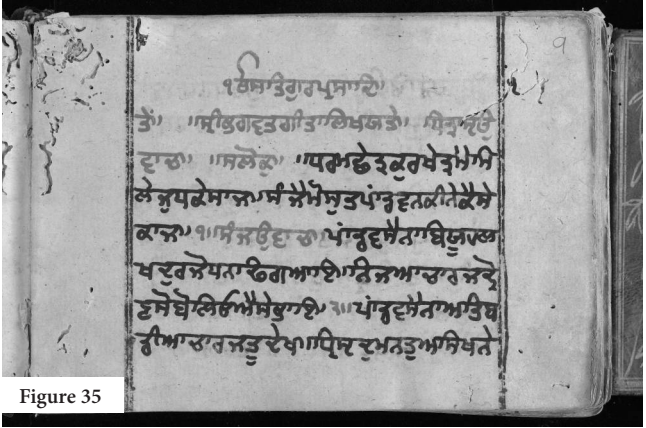 ੧
ੴਸਤਿਗੁਰਪ੍ਰਸਾਦਿ
ਤੇਂ॥ ॥ਸ੍ਰੀਭਗਵਤਗੀਤਾਲਿਖਯਤੇ॥
ਵਾਚ॥ ॥ਸਲੋਕੁ॥ ॥ਧਰਮਛੇਤ੍ਰਕੁਰਖੇਤ੍ਰਮੈਮਿ
ਲੇਜੁਧਕੇਸਾਜ॥ਸੰਜੈਮੋਸੁਤਪਾਂਡਵਨਕੀਨੇਕੈਸੇ
ਕਾਜ॥੧॥ਸੰਜਉਵਾਚ॥ਪਾਂਡਵਸੈਨਾਬਿਯੂਹਲ
ਖਦੁਰਜੋਧਨਾਢਿਗਆਇ॥ਨਿਜਆਚਾਰਜਦ੍ਰੋ
ਣਸੋਬੋਲਿਓਐਸੇਭਾਇ॥੨॥ਪਾਂਡਵਸੈਨਾਅਤਿਬ
ਡੀਆਚਾਰਜਤੂਦੇਖ॥ਧ੍ਰਿਸਟਦੁਮਨਤੁਆਸਿਖਨੇ
Figure 35